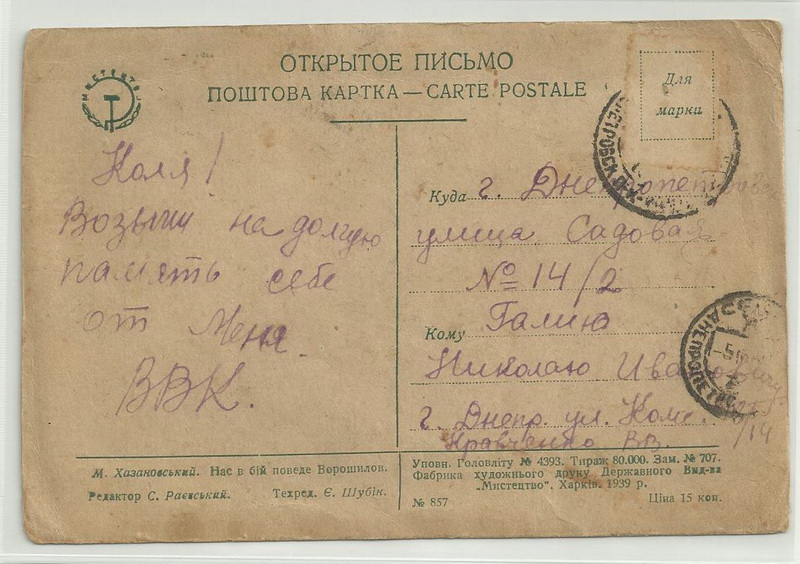 МИСТЕЦТВО
ОТКРЫТОЕ ПИСЬМО
ПОШТОВА КАРТКА — CARTE POSTALE
Для
марки
Коля!
Возьми на долгую
память себе
от меня.
ВВК.
Куда г. Днепропетровск
улица Садовая
№ 14/2
Кому Галию
Николаю Ивановичу
г. Днепр. ул. Ком.
Кравченко В.В.
/14
М. Хазановський. Нас в бій поведе Ворошилов.
Редактор С. Раєвський. Техред. Є. Шубін.
Уповн. Головліту № 4393. Тираж 80.000. Зам. № 707.
Фабрика художнього друку Державного Вид-ва
„Мистецтво". Харків. 1939 р.
№ 857 Ціна 15 коп.